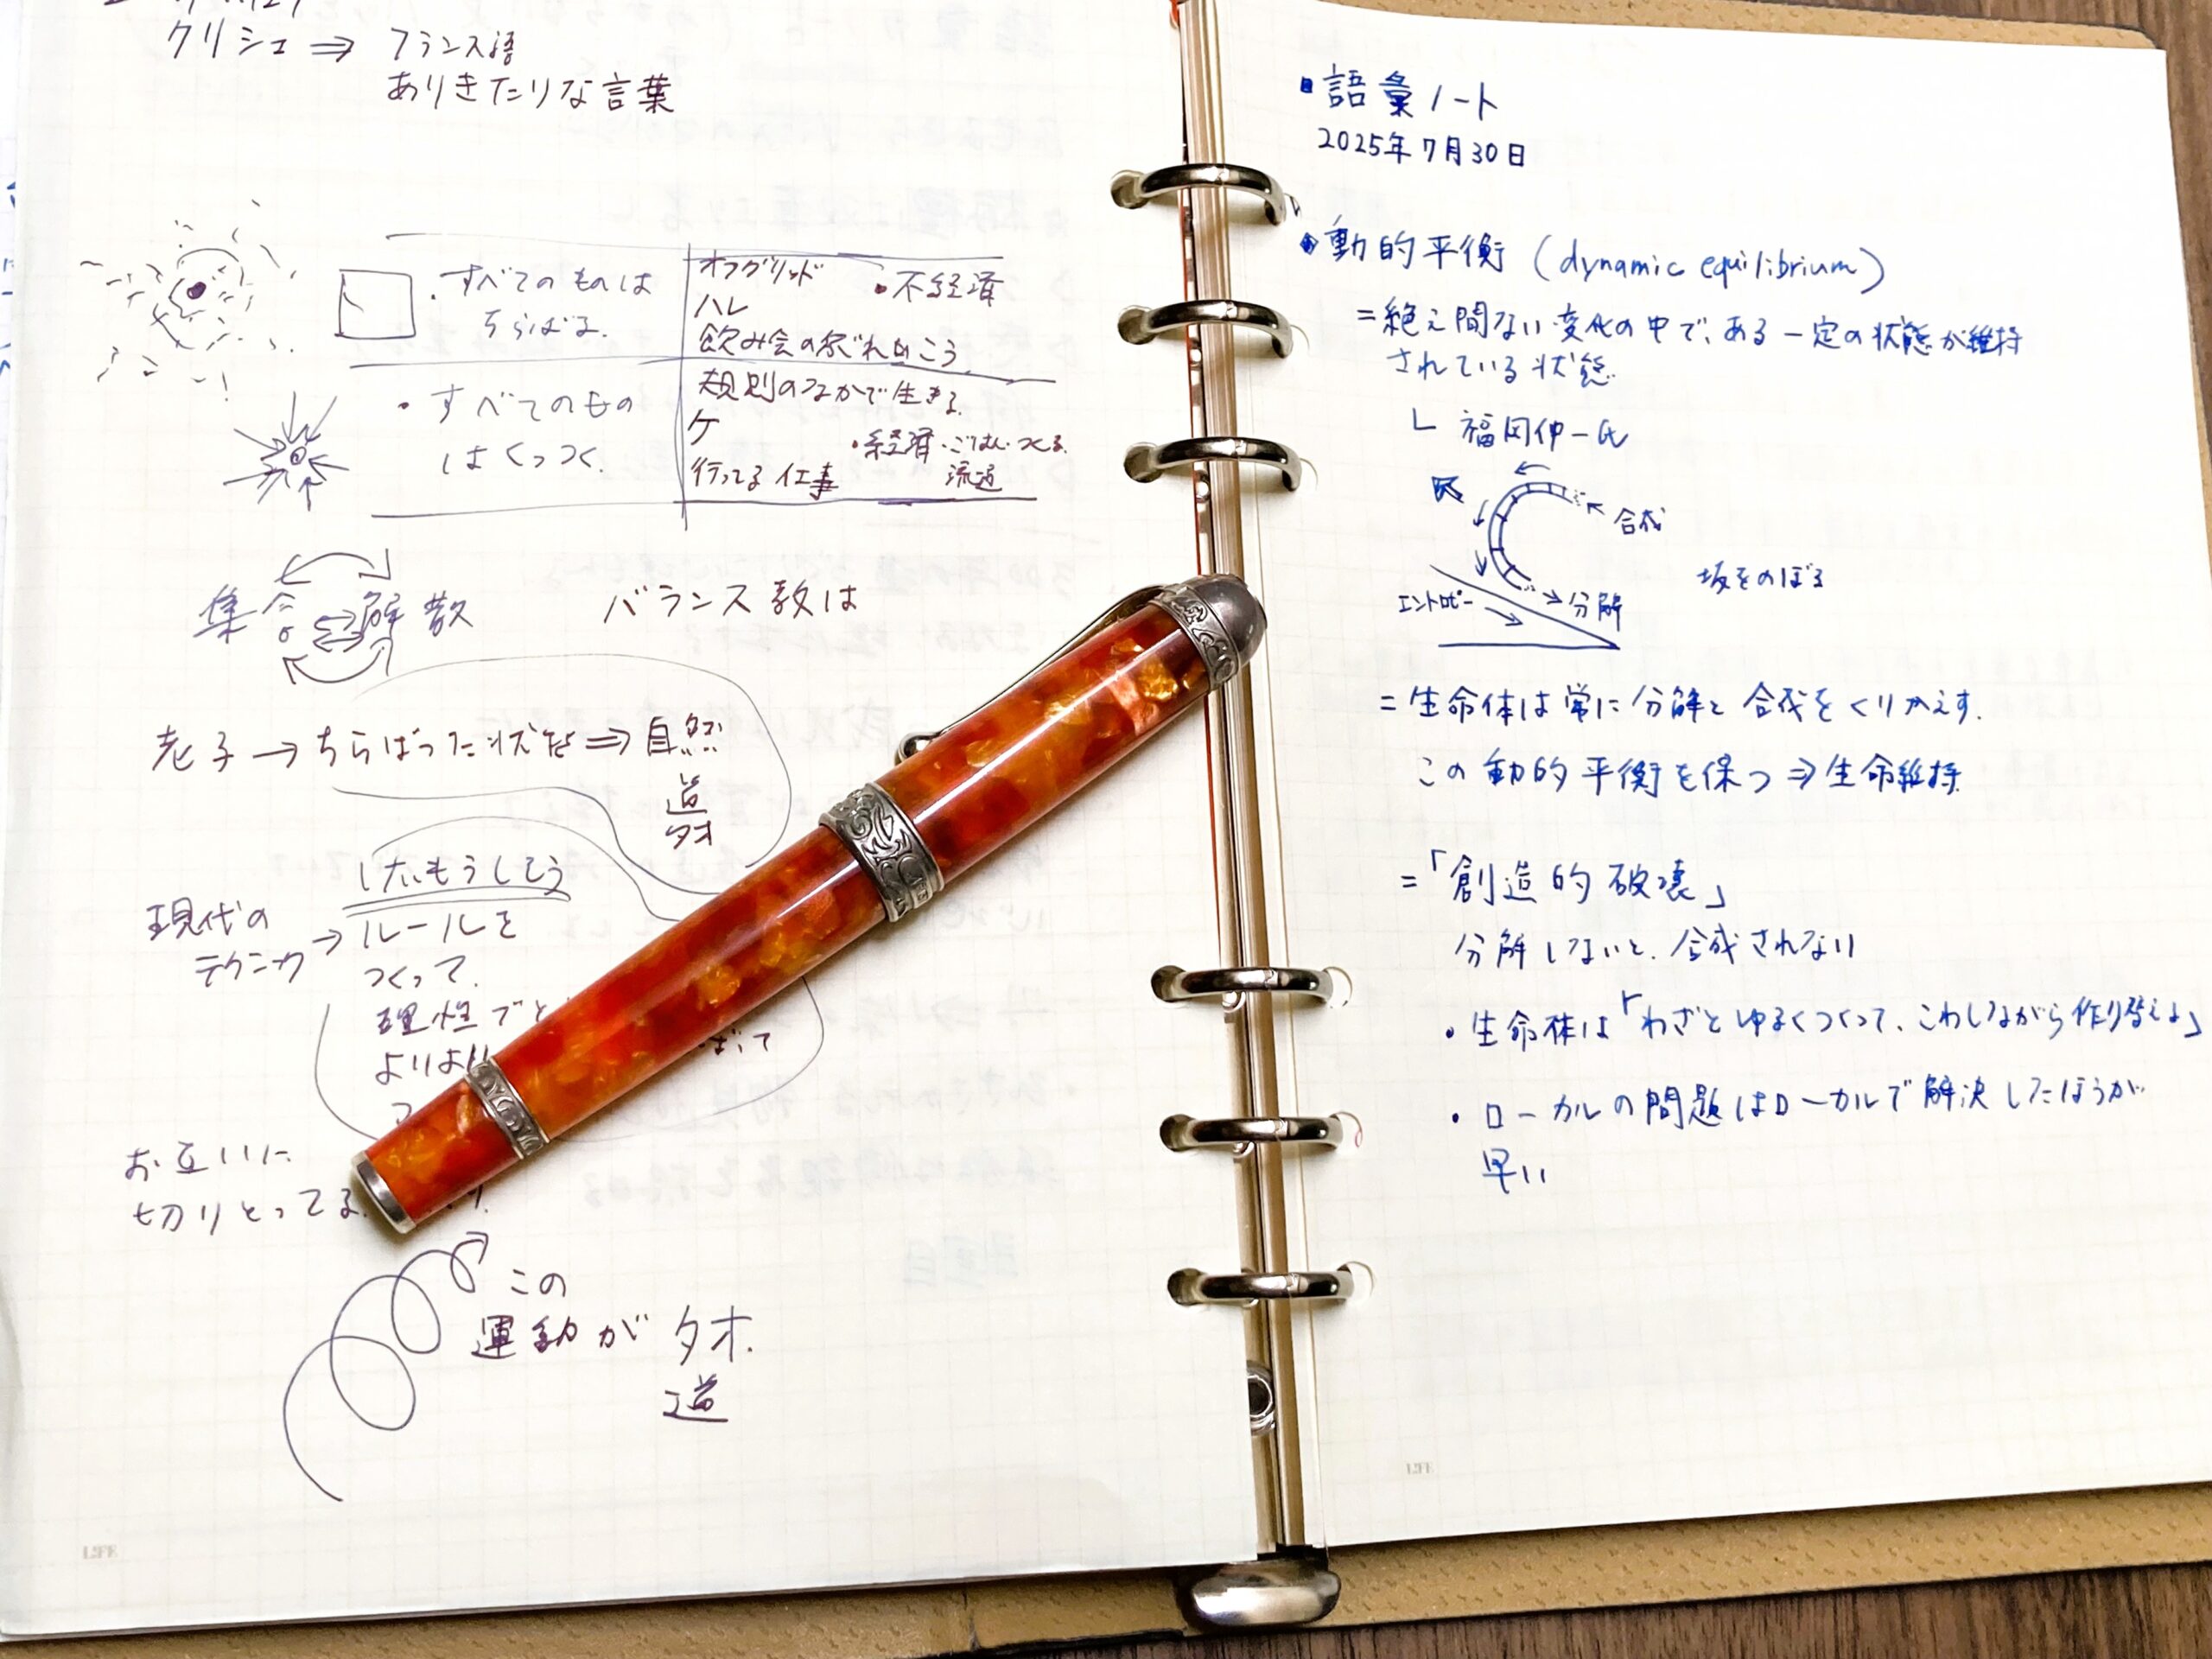 クリシェ ⇒ フランス語
ありきたりな言葉
・すべてのものは
ちらばる.
オフグリッド
・不経済
ハレ
・すべてのもの
はくっつく.
規則のなかで生きる.
ケ
・経済・ごはん・つくる.
行ってる仕事
集合 解散
バランス教は
老子→ちらばった状態⇒自然
道
タオ
現代の
テクニカ→
ルールを
つくって.
理性で
お互いに
切りとってる.
この
運動がタオ.
道
LIFE
語彙ノート
2025年7月30日
動的平衡 (dynamic equilibrium)
=絶え間ない変化の中で、ある一定の状態が維持
されている状態.
└ 福岡伸一氏
合成
坂をのぼる
エントロピー
分解
=生命体は常に分解と合成をくりかえす.
この動的平衡を保つ⇒生命維持
=「創造的破壊」
分解しないと、合成されない
・生命体は「わざとゆるくつくって、こわしながら作り替えよ」
・ローカルの問題はローカルで解決したほうが
早い
LIFE